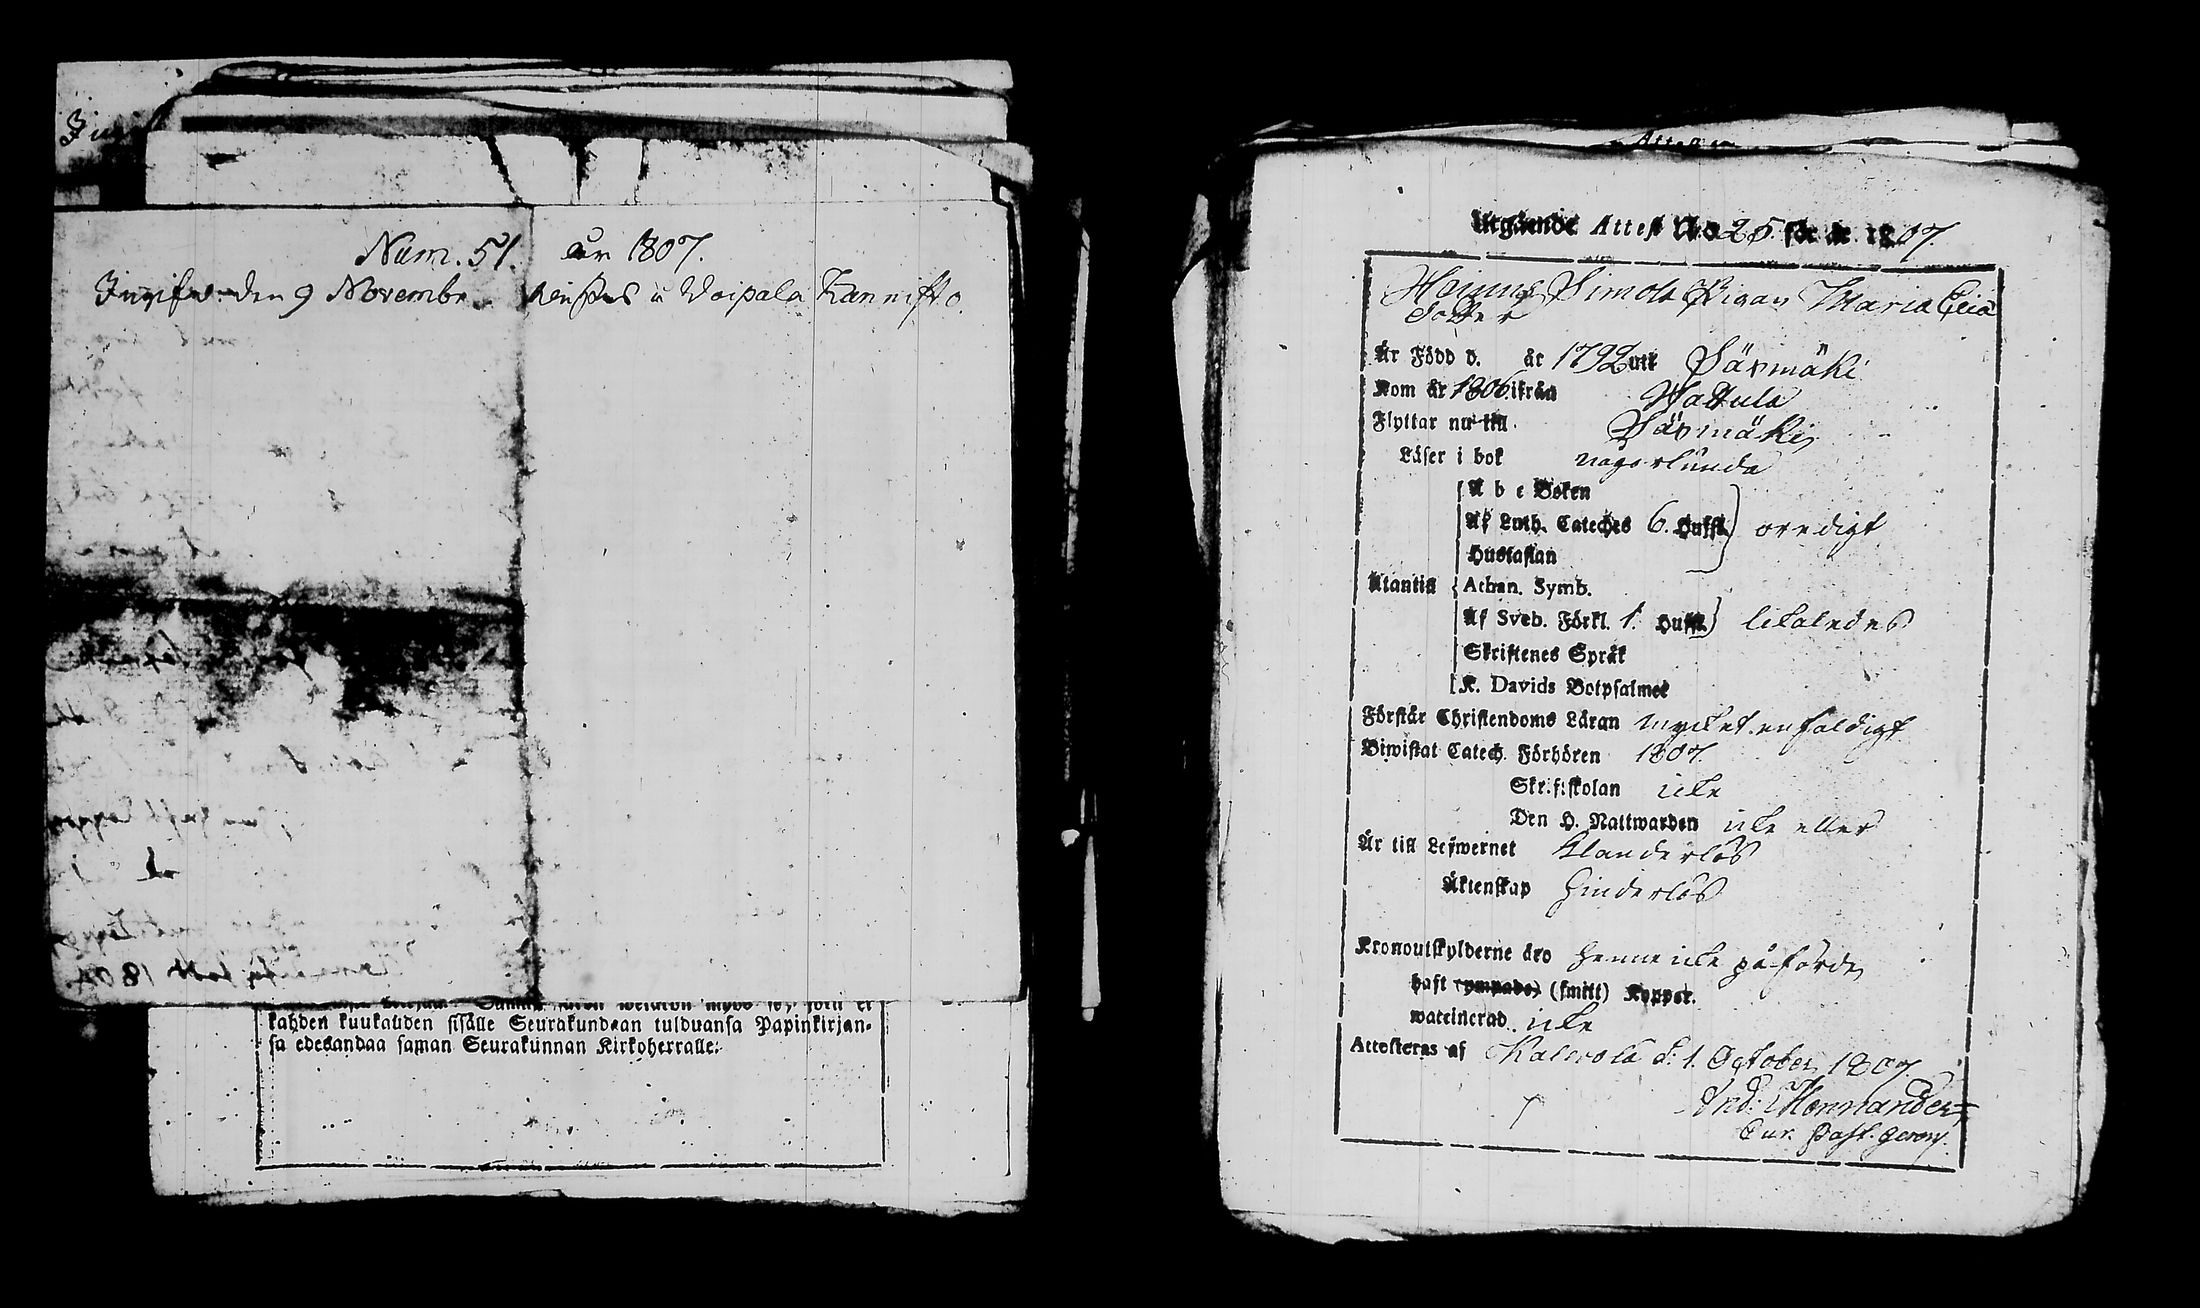 Num. 51. år 1807.
Ingifv. den 9 Novembr. Voipala Kannisto.
kahden kuukauden sisälle Seurakundaan tulduansa Papinkirjan-
sa edesandaa saman Seurakunnan Kirkoherralle.
Utgående Attest No 25. för år 1807.
Simola Pigan Maria Eric
dotter
Är Född d. år 1792 uti Särmäki
Kom år 1806 ifrån Wattula
Flyttar nu till Särmäki
Läser i bok någorlunda
A b c Boken
Af Luth. Cateches 6. Hufst. oredigt
Hustaflan
Utantill Athan. Symb.
Af Sveb. Förkl. 1. Hufst. likaledes
Skriftenes Språk
K. Davids Botpsalmer
Förstår Christendoms Läran mycket enfaldigt
Biwistat Catech. Förhören 1807.
Skriftskolan icke
Den H. Nattwarden icke eller
Är till Lefwernet klanderlös
Äktenskap hinderlös
Kronoutskylderne äro henne icke påförde,
haft (smitt) Koppor.
waccinerad icke
Attesteras af Kalvola d. 1. October 1807.
And: Monnander
Cur. Past. gerens.